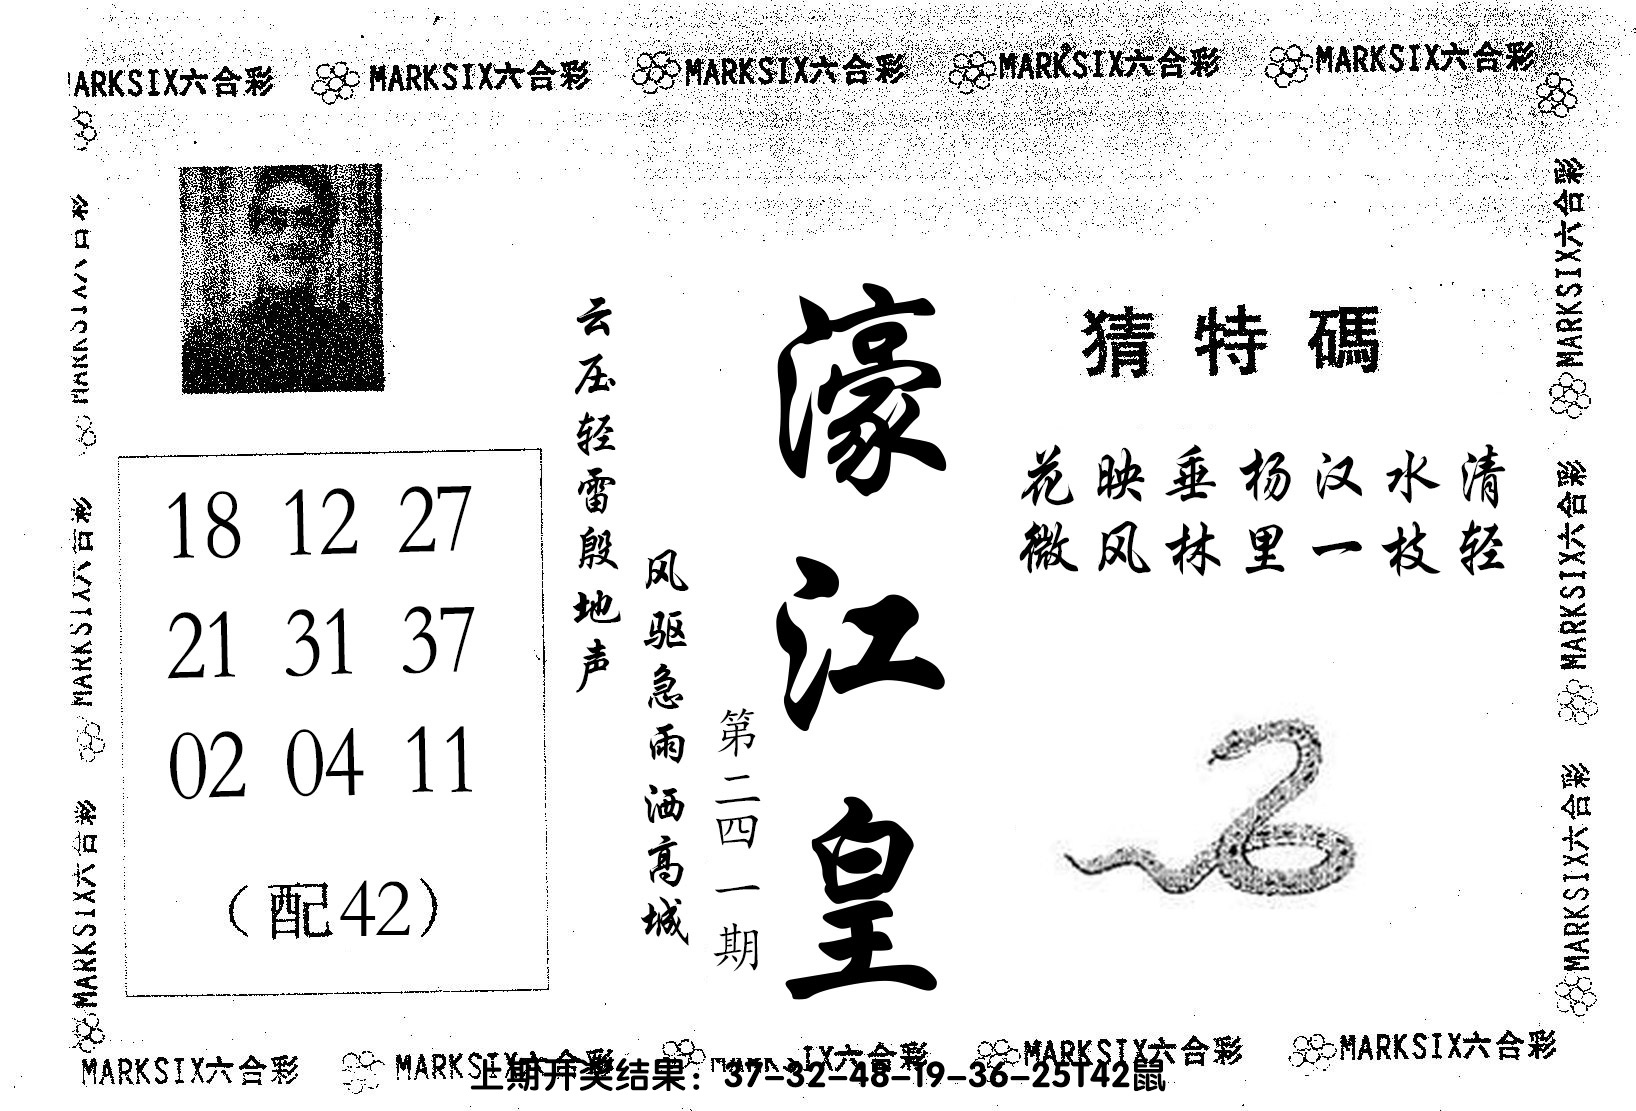 MARKSIX六合彩 MARKSIX六合彩 MARKSIX六合彩 MARKSIX六合彩 MARKSIX六合彩
MARKSIX六合彩
MARKSIX六合彩
MARKSIX六合彩
18 12 27
21 31 37
02 04 11
（配42）
云压轻雷殷地声
风驱急雨洒高城
第二四一期
濠江皇
猜特碼
花映垂杨汉水清
微风林里一枝轻
MARKSIX六合彩
MARKSIX六合彩
MARKSIX六合彩
MARKSIX六合彩 MARKSIX六合彩 MARKSIX六合彩 MARKSIX六合彩 MARKSIX六合彩
上期开奖结果：37-32-48-19-36-25T42鼠